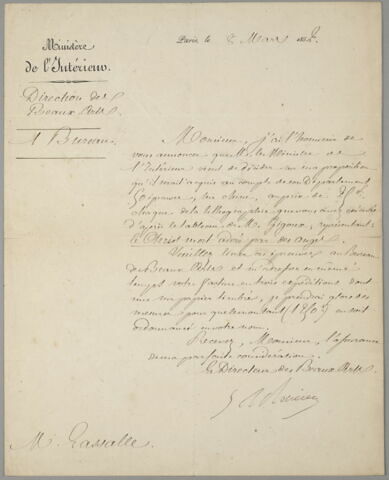 Ministère
de l'Intérieur.
Paris le 2 Mars 184
Direction des
Beaux Arts.
1 Bureau
Monsieur, j'ai l'honneur de
vous annoncer que M. le Ministre de
l'Intérieur vient de décider sur ma proposition
qu'il serait acquis au compte de son Département
épreuves, sur chine, au prix de
chacune de la lithographie que vous avez exécutée
d'après le tableau de M. Gigoux, représentant
le Christ mort adoré par des anges.
Veuillez tenir ces épreuves au Bureau
des Beaux Arts et m'adresser en même
temps votre facture en trois expéditions dont
une sur papier timbré, je prendrai alors des
mesures pour que le montant (150f) en soit
ordonnancé en votre nom.
Recevez, Monsieur, l'assurance
de ma parfaite considération.
Le Directeur des Beaux Arts
M. Lassalle.